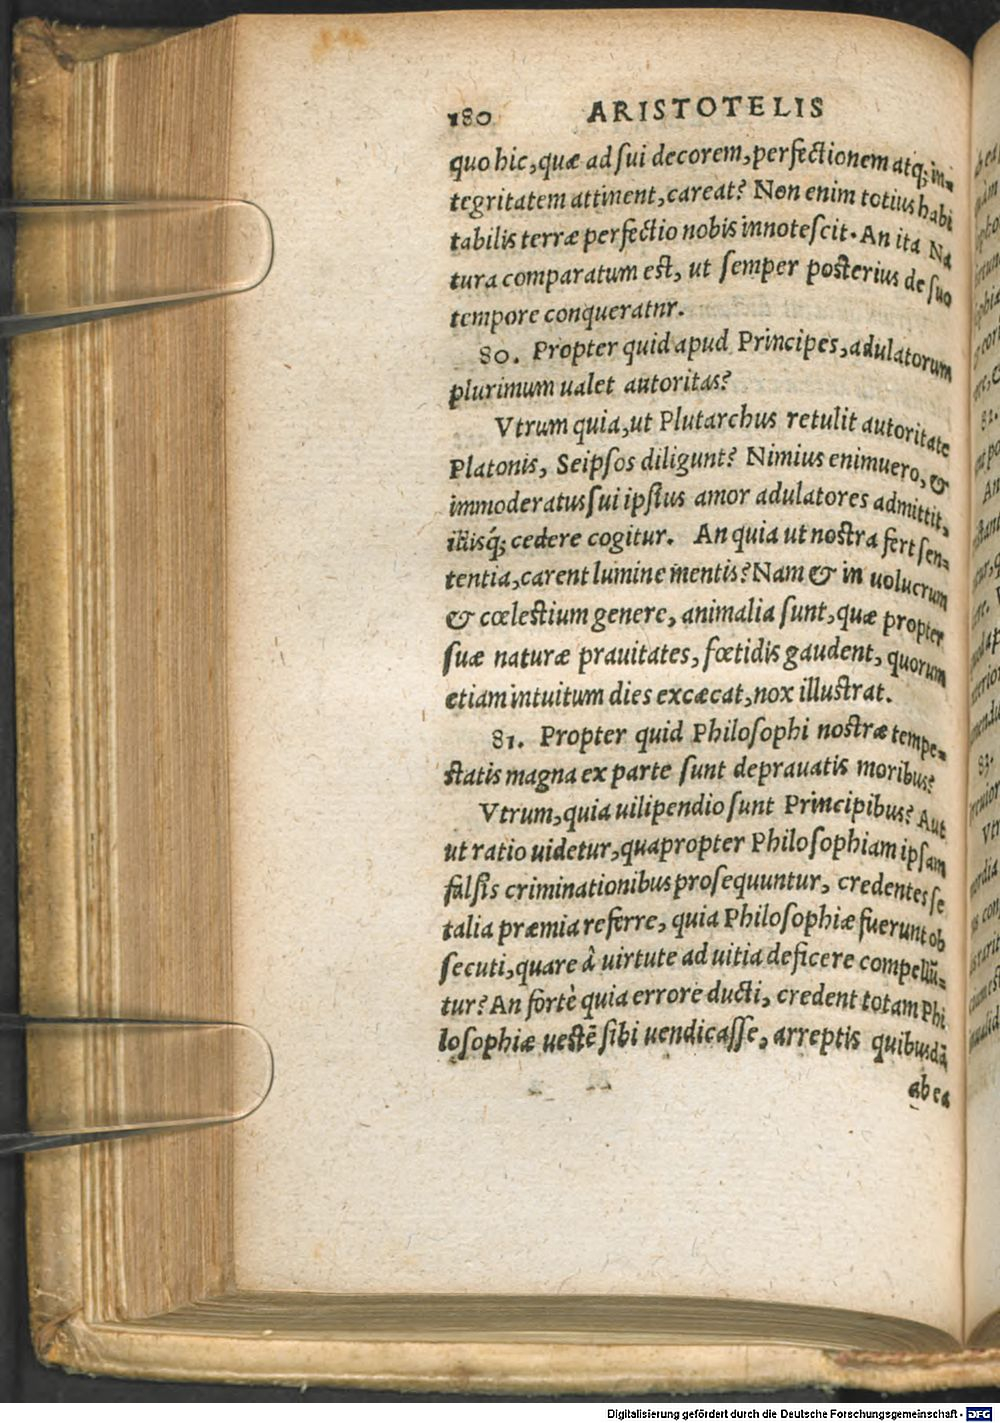 180 ARISTOTELIS
quo hic, quæ ad sui decorem, perfectionem atq; in-
tegritatem attinent, careat? Non enim totius habi
tabilis terræ perfectio nobis innotescit. An ita Na
tura comparatum est, ut semper posterius de suo
tempore conqueratnr.
80. Propter quid apud Principes, adulatorum
plurimum ualet autoritas?
Vtrum quia, ut Plutarchus retulit autoritate
Platonis, Seipsos diligunt? Nimius enimuero, &
immoderatus sui ipsius amor adulatores admittit,
illisq́; cedere cogitur. An quia ut nostra fert sen-
tentia, carent lumine mentis? Nam & in uolucrum
& cœlestium genere, animalia sunt, quæ propter
suæ naturæ prauitates, fœtidis gaudent, quorum
etiam intuitum dies excæcat, nox illustrat.
81. Propter quid Philosophi nostræ tempe-
statis magna ex parte sunt deprauatis moribus?
Vtrum, quia uilipendio sunt Principibus? Aut
ut ratio uidetur, quapropter Philosophiam ipsam
falsis criminationibus prosequuntur, credentes se
talia præmia referre, quia Philosophiæ fuerunt ob
secuti, quare à uirtute ad uitia deficere compellũ-
tur? An fortè quia errore ducti, credent totam Phi
losophiæ uestẽ sibi uendicasse, arreptis quibusdã
ab ea
Digitalisierung gefördert durch die Deutsche Forschungsgemeinschaft - DFG